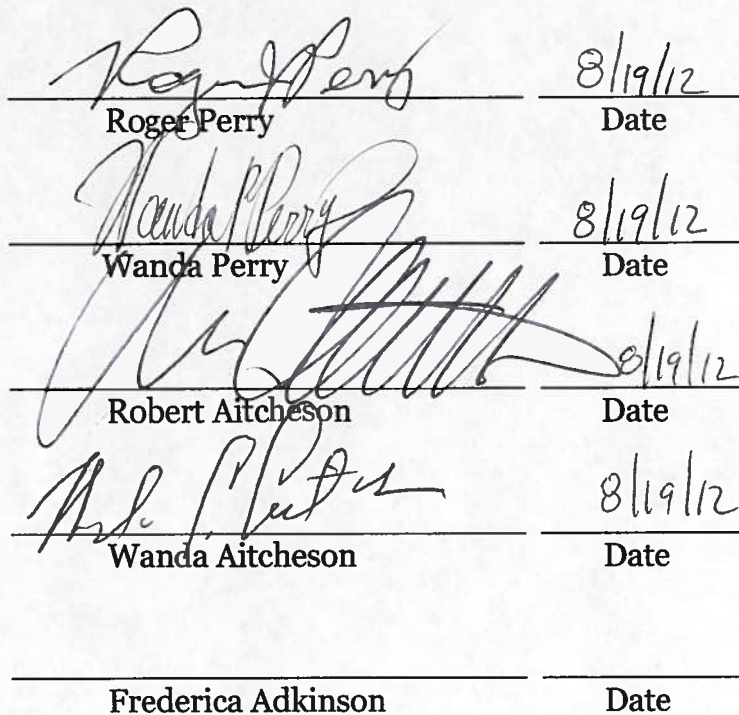 Roger J Perry 8/19/12
Roger Perry Date
Wanda P Perry 8/19/12
Wanda Perry Date
8/19/12
Robert Aitcheson Date
8/19/12
Wanda Aitcheson Date
Frederica Adkinson Date